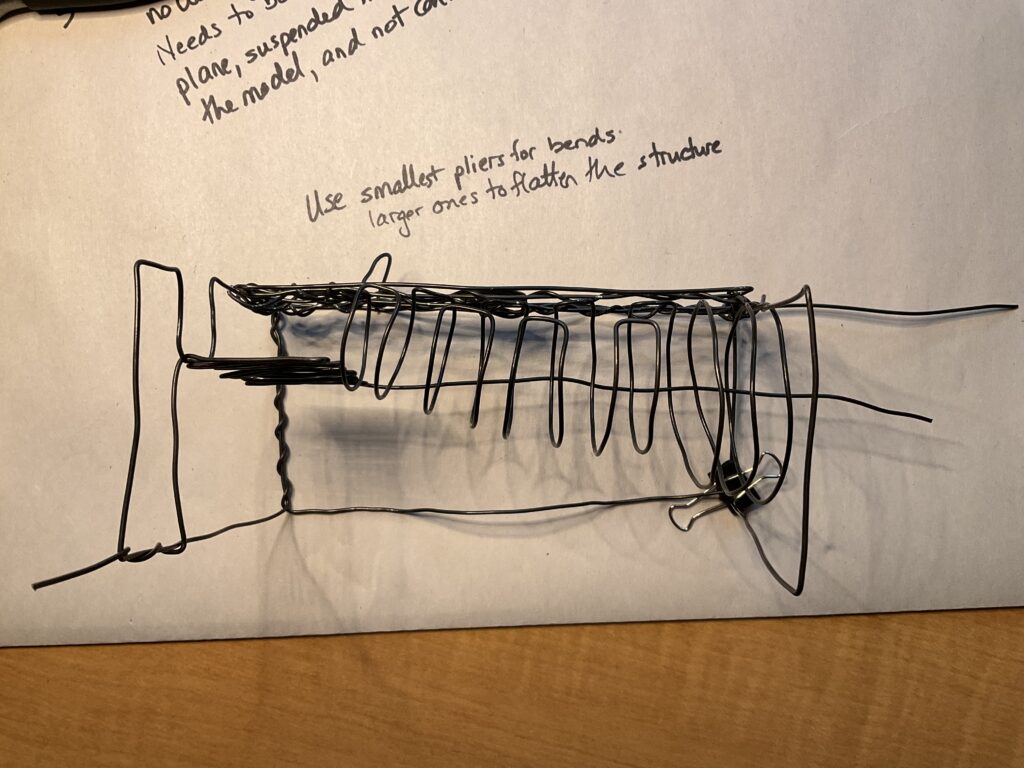 Needs to
plane, suspended
the model, and not
Use smallest pliers for bends.
larger ones to flatten the structure